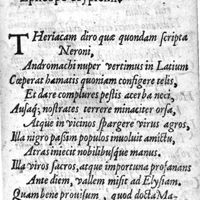 THeriacam diro quæ quondam scripta
Neroni,
Andromachi nuper vertimus in Latium
Cœperat hamatis quoniam configere telis,
Et dare complures pestis acerba neci,
Ausaq́; nostrates terrere minaciter orsa,
Atque in vicinos spargere virus agros,
Illa nigro passim populos inuoluit amictu,
Atra inijecit nobilibusque manus.
Illa viros sacros, atque importuna profanans
Ante diem, vallem misit ad Elysiam.
Quam bene prouisum, quod docta Ma-